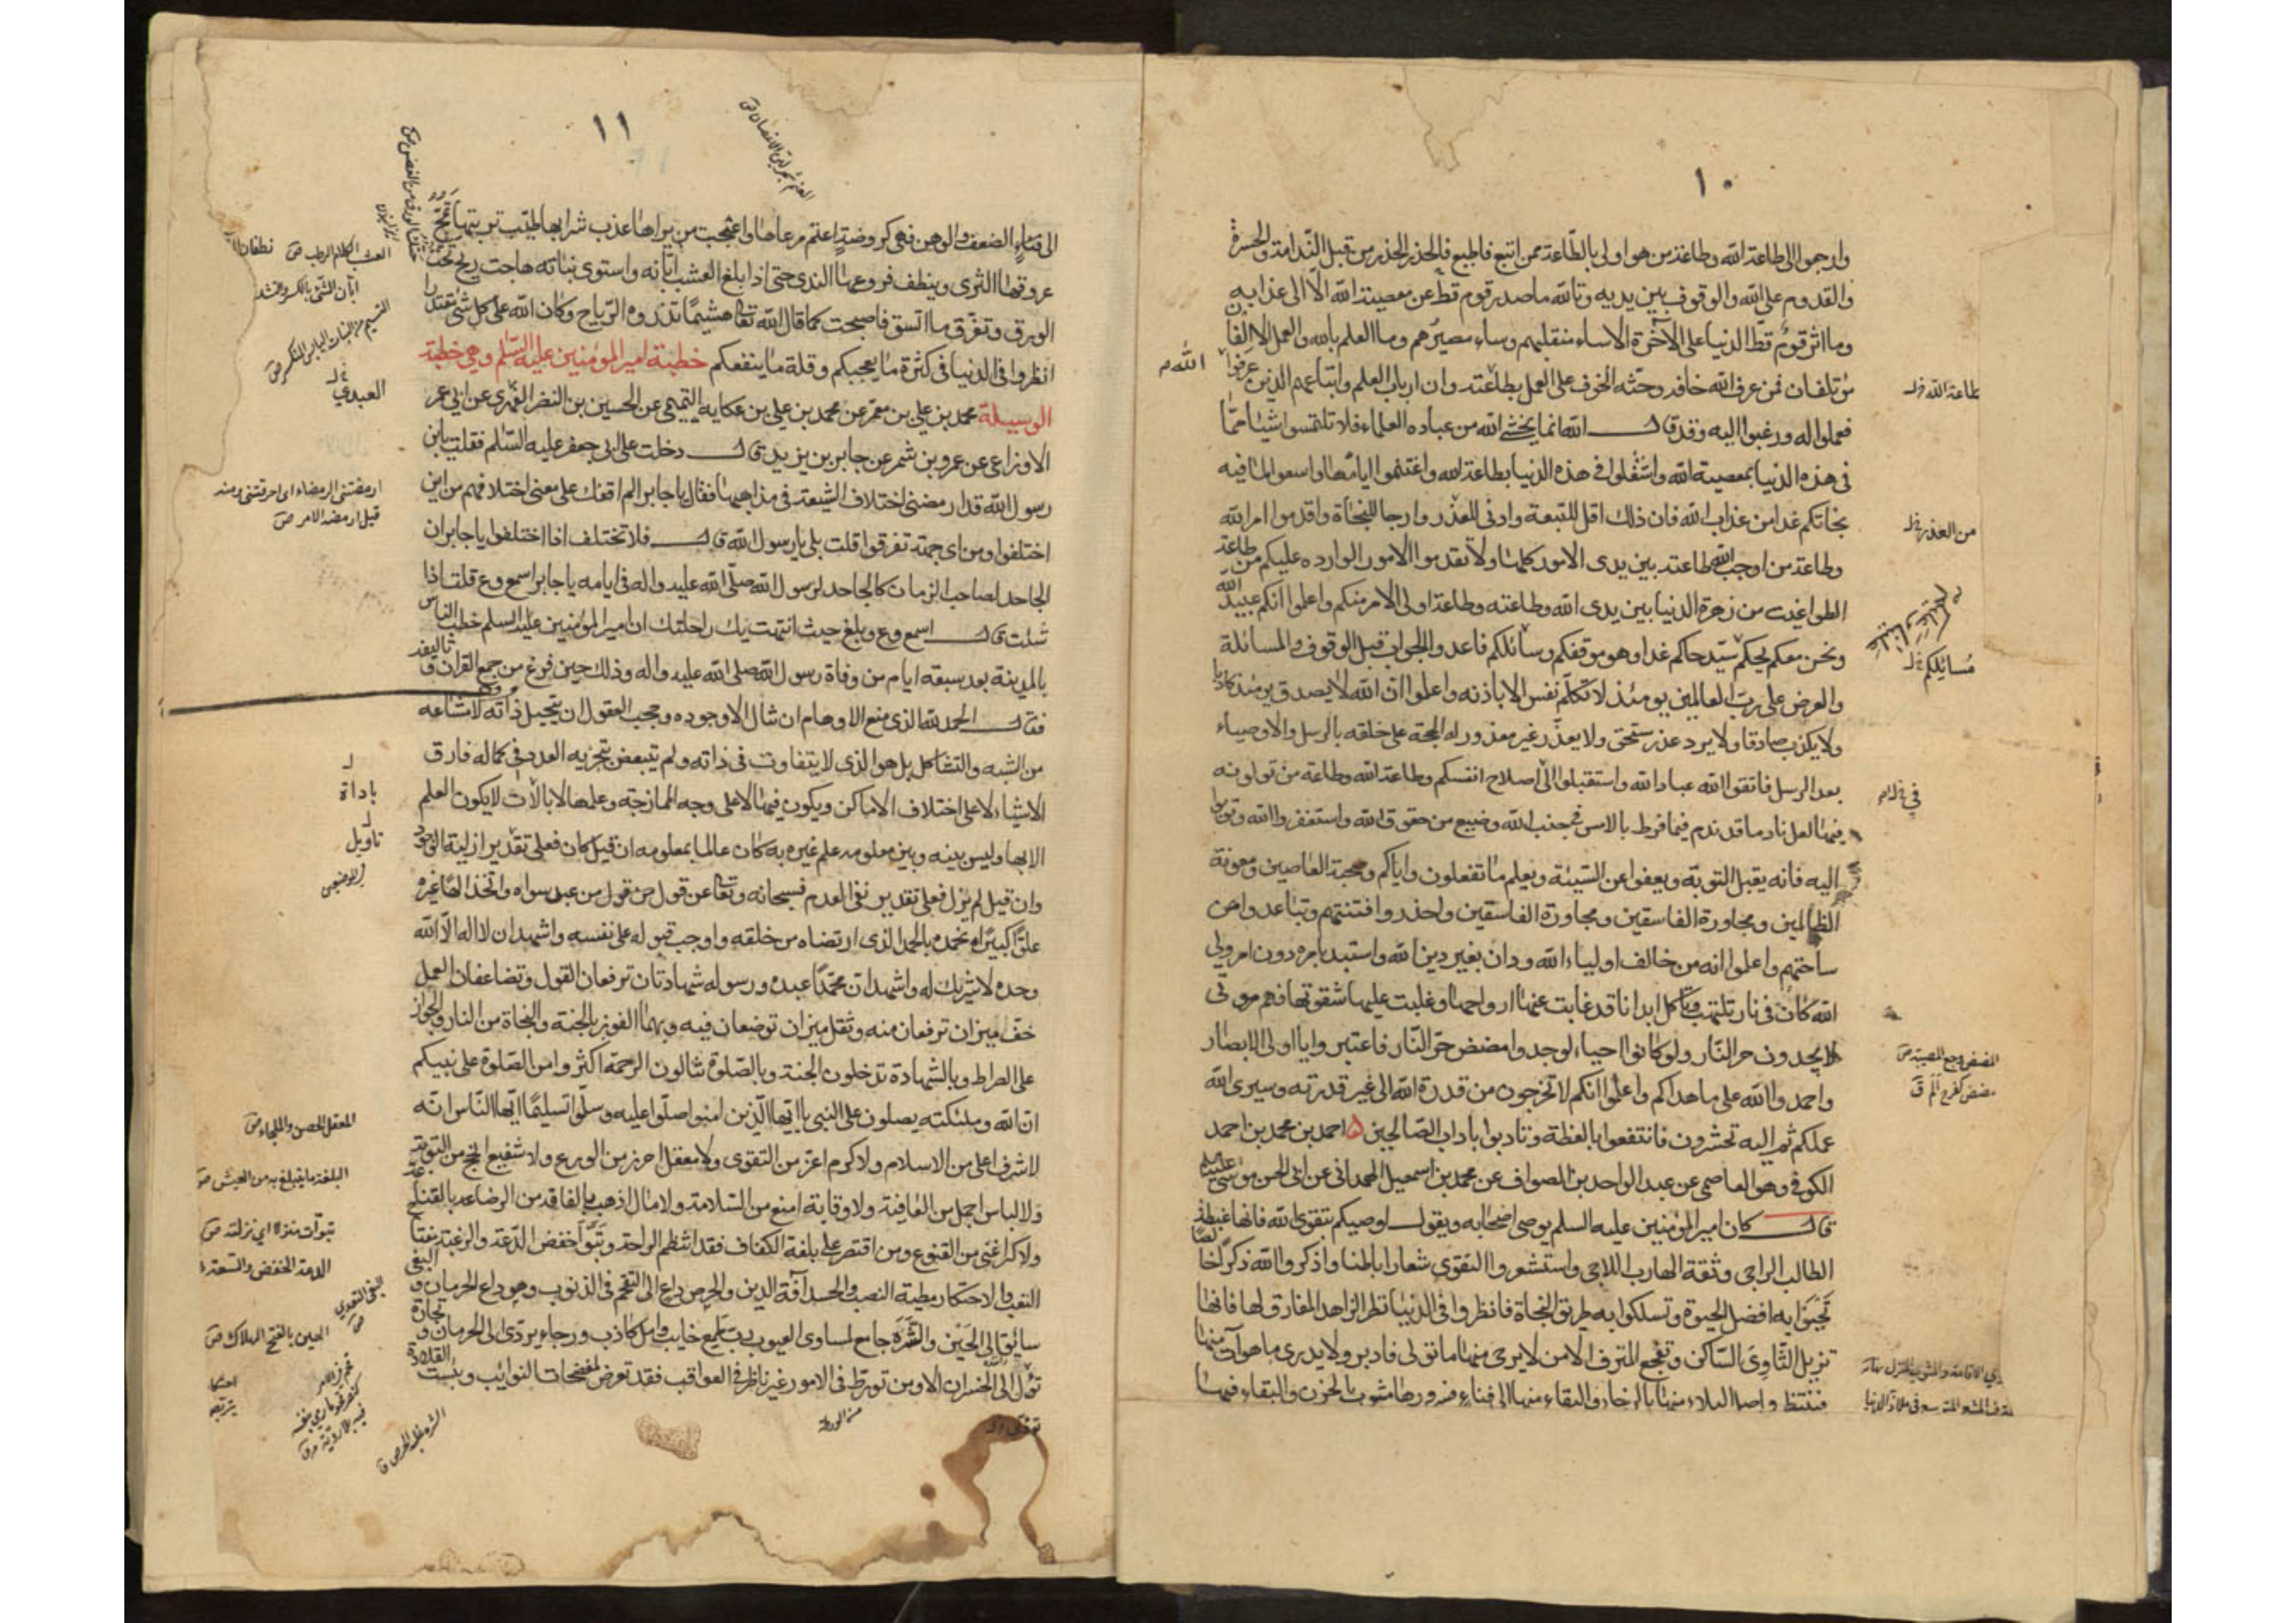 ١٠
وارجعوا الى طاعة الله وطاعة من هو اولى بالطّاعة ممن اتبع فاطيع فالحذر الحذر من قبل النّدامة والحسرة
والقدوم على الله والوقوف بين يديه وتالله ما صدر قوم قطّ عن معصية الله الّا الى عذابه
وما اثر قوم قطّ الدنيا على الآخرة الا ساء منقلبهم وساء مصيرهم وما العلم بالله والعمل الا الفان
مؤتلفان فمن عرف الله خافه وحثّه الخوف على العمل بطاعته وان ارباب العلم واتباعهم الذين عرفوا
الله
طاعة الله
فعملوا له ورغبوا اليه وقد قال الله انما يخشى الله من عباده العلماء فلا تلتمسوا شيئا ممّا
فى هذه الدنيا بمعصية الله واشتغلوا فى هذه الدنيا بطاعة الله واغتنموا ايامها واسعوا لما فيه
نجاتكم غدا من عذاب الله فان ذلك اقل للتبعة وادنى للعذر وارجا للنجاة واقدموا امر الله
من العذر
وطاعة من اوجب الله طاعته بين يدى الامور كلها ولا تقدموا الامور الوارده عليكم من طاعة
الطواغيت من زهرة الدنيا بين يدى الله وطاعته وطاعة اولى الامر منكم واعلموا انكم عبيد الله
ونحن معكم يحكم سيّد حاكم غدا وهو موقفكم وسائلكم فاعدوا الجواب قبل الوقوف والمسائلة
مسائلكم
والعرض على ربّ العالمين يومئذ لا تكلّم نفس الا باذنه واعلموا انّ الله لا يصدق يومئذ كاذبا
ولا يكذب صادقا ولا يرد عذر مستحق ولا يعذّر غير معذور له الحجة على خلقه بالرسل والاوصياء
بعد الرسل فاتقوا الله عباد الله واستقبلوا الى اصلاح انفسكم وطاعة الله وطاعة من تولونه
فى
فيها لعل نادما قد ندم فيما فرط بالامس فى جنب الله وضيع من حقوق الله واستغفروا الله وتوبوا
اليه فانه يقبل التوبة ويعفوا عن السّيئة ويعلم ما تفعلون واياكم وصحبة العاصين ومعونة
الظالمين ومجاورة الفاسقين ومجاورة الفاسقين واحذروا فتنتهم وتباعدوا من
ساحتهم واعلموا انه من خالف اولياء الله ودان بغير دين الله واستبد بامره دون امر ولى
الله كان فى نار تلتهب تاكل ابدانا قد غابت عنها ارواحها وغلبت عليها شقوتها فهم موتى
لا يجدون حر النّار ولو كانوا احياء لوجدوا مضض حرّ النّار فاعتبروا يا اولى الابصار
المضض وجع المصيبة ص
مضض كفرح الم ق
واحمدوا الله على ما هداكم واعلموا انكم لا تخرجون من قدرة الله الى غير قدرته وسيرى الله
عملكم ثم اليه تحشرون فانتفعوا بالعظة وتادبوا باداب الصّالحين احمد بن محمد بن احمد
الكوفى وهو العاصمى عن عبد الواحد بن الصواف عن محمد بن اسمعيل الهمدانى عن ابى الحسن موسى
قال كان امير المؤمنين عليه السلم يوصى اصحابه ويقول اوصيكم بتقوى الله فانها غبطة
الطالب الراجى وثقة الهارب اللاجى واستشعروا التقوى شعارا باطنا واذكروا الله ذكرا خالصا
تحيوا به افضل الحيوة وتسلكوا به طريق النجاة فانظروا فى الدنيا نظر الزاهد المفارق لها فانها
تزيل الثّاوى السّاكن وتفجع المترف الآمن لا يرجى منها ما تولى فادبر ولا يدرى ما هو آت منها
فتنتظر واصل البلاء منها بالرخاء والبقاء منها الى فناء فسرورها مشوب بالحزن والبقاء فيها
١١
الى فناء الضعف والوهن فهى كروضة اعتم مرعاها واعجبت من يراها عذب شرابها طيّب تربتها تمجّ
عروقها الثرى وينطف فروعها الندى حتى اذا بلغ العشب ابّانه واستوى نباته هاجت ريح تحتّ
العشب الكلاء الرطب ص
ابّان الشئ بالكسر والتشديد
الورق وتفرّق ما اتسق فاصبحت كما قال الله تعالى هشيمًا تذروه الرّياح وكان الله على كل شئ مقتدرا
انظروا فى الدنيا فى كثرة ما يعجبكم وقلة ما ينفعكم خطبة لامير المؤمنين عليه السّلم وهى خطبة
العبدي
الوسيلة محمد بن على بن معمّر عن محمد بن على بن عكاية التميمى عن الحسين بن النضر الفهرى عن ابى عمر
الاوزاعى عن عمرو بن شمر عن جابر بن يزيد قال دخلت على ابى جعفر عليه السّلم فقلت يا بن
رسول الله قد ارمضنى اختلاف الشيعة فى مذاهبها فقال يا جابر الم اقفك على معنى اختلافهم من اين
ارمضتنى الرمضاء اى احرقتنى ومنه
قيل ارمضه الامر ص
اختلفوا ومن اى جهة تفرقوا قلت بلى يا رسول الله قال فلا تختلف اذا اختلفوا يا جابر ان
الجاحد لصاحب الزمان كالجاحد لرسول الله صلّى الله عليه واله فى ايامه يا جابر اسمع وع قلت اذا
شئت قال اسمع وع وبلغ حيث انتهت بك راحلتك ان امير المؤمنين عليه السلم خطب الناس
بالمدينة بعد سبعة ايام من وفاة رسول الله صلى الله عليه واله وذلك حين فرغ من جمع القران وتاليفه
فقال الحمد لله الذى منع الاوهام ان تنال الا وجوده وحجب العقول ان تتخيل ذاته لامتناعه
من الشبه والتشاكل بل هو الذى لا يتفاوت فى ذاته ولم يتبعض بتجزية العدد فى كماله فارق
الاشياء لا على اختلاف الاماكن ويكون فيها لا على وجه الممازجة وعلمها لا بالات لا يكون العلم
باداة
الا بها وليس بينه وبين معلومه علم غيره به كان عالما بمعلومه ان قيل كان فعلى تقدير ازلية الوجود
تاويل
وان قيل لم يزل فعلى تقدير نفى العدم فسبحانه وتعالى عن قول من قول من عبد سواه واتخذ الها غيره
علوّا كبيرا نحمده بالحمد الذى ارتضاه من خلقه واوجب قبوله على نفسه واشهد ان لا اله الا الله
وحده لا شريك له واشهد انّ محمّدا عبده ورسوله شهادتان ترفعان القول وتضاعفان العمل
خفّ ميزان ترفعان منه وثقل ميزان توضعان فيه وبهما الفوز بالجنة والنجاة من النار والجواز
على الصراط وبالشهادة تدخلون الجنة وبالصّلوة تنالون الرحمة اكثروا من الصّلوة على نبيكم
انّ الله وملئكته يصلون على النبى يا ايّها الّذين امنوا صلّوا عليه وسلّموا تسليمًا ايّها النّاس انّه
المعقل الحصن والملجاء ص
لا شرف اعلى من الاسلام ولا كرم اعزّ من التقوى ولا معقل احرز من الورع ولا شفيع انجح من التوبة
البلغة ما يتبلغ به من العيش ص
ولا لباس اجمل من العافية ولا وقاية امنع من السّلامة ولا مال اذهب بالفاقة من الرضا بالقناعة
تبوّات منزلا اى نزلته ص
ولا كنز اغنى من القنوع ومن اقتصر على بلغة الكفاف فقد انتظم الراحة وتبوّأ خفض الدّعة والرغبة مفتاح
الدعة الخفض والسعة
التعب والاحتكار مطية النصب والحسد آفة الدين والحرص داع الى التقحّم فى الذنوب وهو داع الحرمان والبغى
سايق الى الحين والشّره جامع لمساوى العيوب ربّ طمع خايب وامل كاذب ورجاء يودّى الى الحرمان وتجارة
الحين بالفتح الهلاك ص
تؤل الى الخسران الا ومن تورط فى الامور غير ناظر فى العواقب فقد تعرض لمفضحات النوايب وبئست القلادة